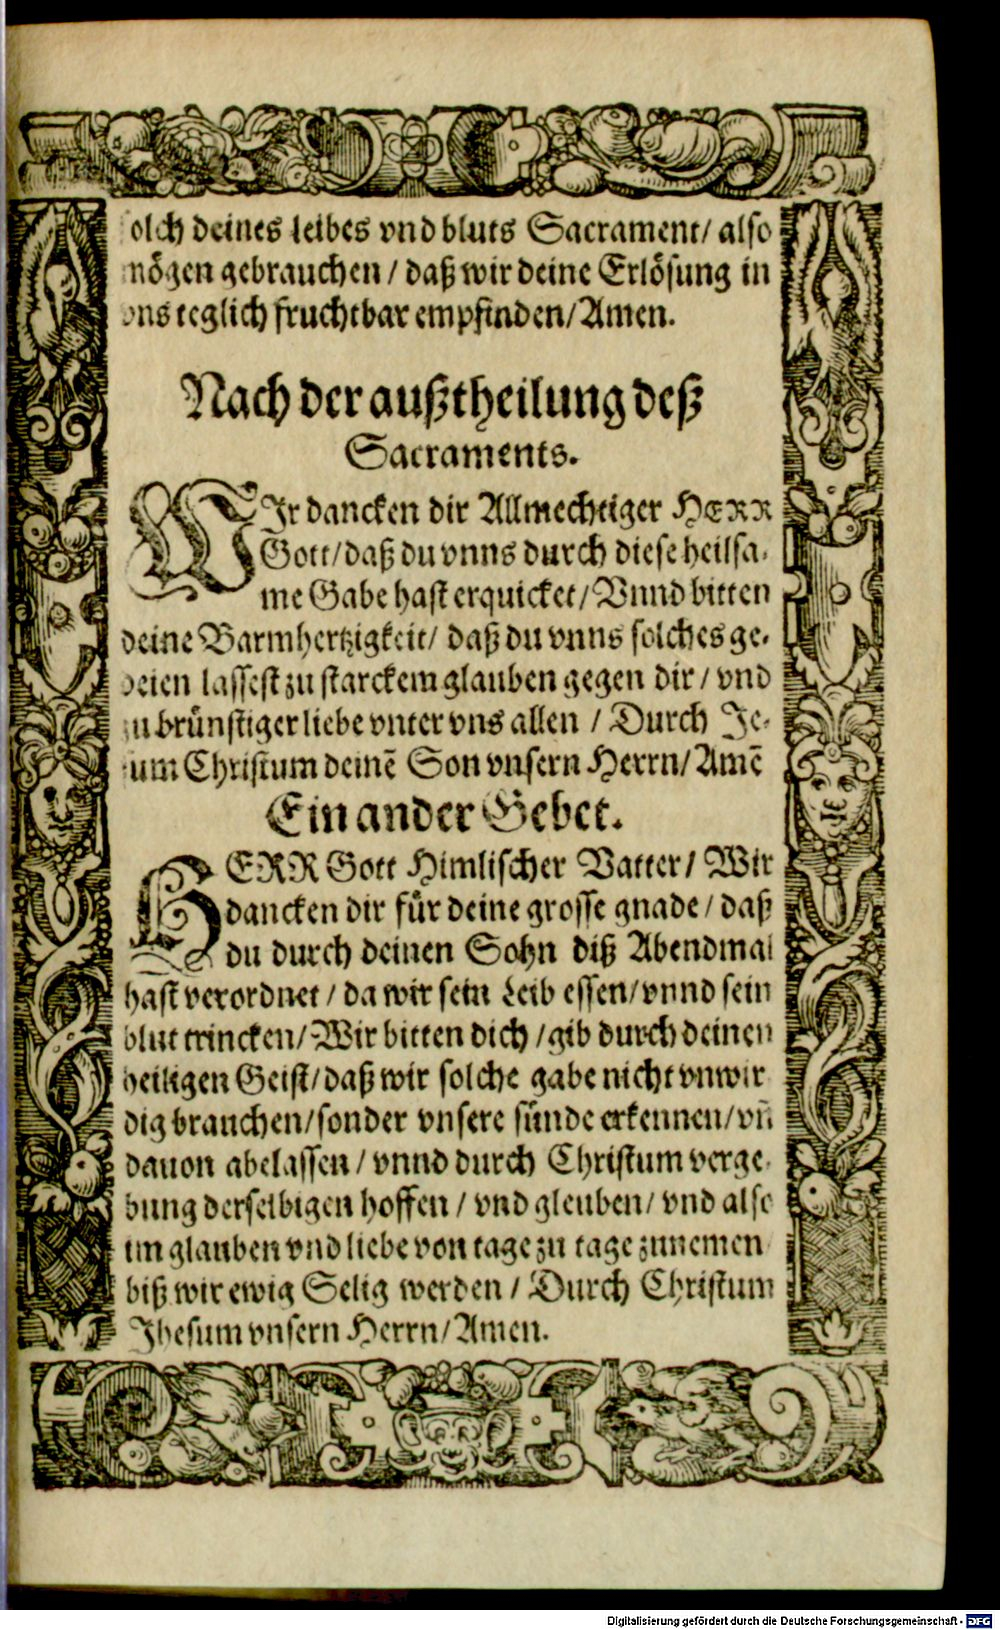 solch deines leibes vnd bluts Sacrament/ also
mögen gebrauchen / daß wir deine Erlösung in
vns teglich fruchtbar empfinden/ Amen.
Nach der außtheilung deß
Sacraments.
WIr dancken dir Allmechtiger HERR
Gott/ daß du vnns durch diese heilsa-
me Gabe hast erquicket/ Vnnd bitten
deine Barmhertzigkeit/ daß du vnns solches ge-
deien lassest zu starckem glauben gegen dir / vnd
zu brünstiger liebe vnter vns allen / Durch Je-
sum Christum deinē Son vnsern Herrn/ Amē
Ein ander Gebet.
HERR Gott Himlischer Vatter/ Wir
dancken dir für deine grosse gnade / daß
du durch deinen Sohn diß Abendmal
hast verordnet / da wir sein Leib essen/ vnnd sein
blut trincken/ Wir bitten dich / gib durch deinen
heiligen Geist/ daß wir solche gabe nicht vnwir
dig brauchen/ sonder vnsere sünde erkennen/ vn̄
dauon abelassen / vnnd durch Christum verge-
bung derselbigen hoffen / vnd gleuben/ vnd also
im glauben vnd liebe von tage zu tage zunemen
biß wir ewig Selig werden / Durch Christum
Jhesum vnsern Herrn/ Amen.
Digitalisierung gefördert durch die Deutsche Forschungsgemeinschaft - DFG